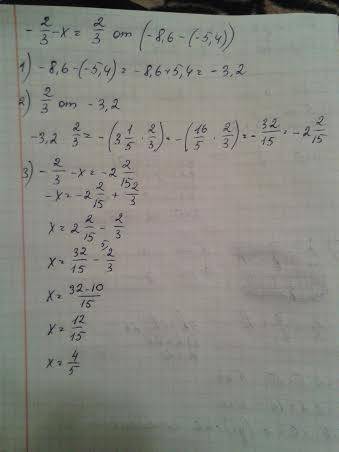 - 2/3 - x = 2/3 от (-8,6 - (-5,4))
1) -8,6 - (-5,4) = -8,6 + 5,4 = -3,2
2) 2/3 от -3,2
-3,2 · 2/3 = -(3 1/5 · 2/3) = -(16/5 · 2/3) = -32/15 = -2 2/15
3) - 2/3 - x = -2 2/15
-x = -2 2/15 + 2/3
x = 2 2/15 - 2/3
x = 32/15 - 2/3 5/
x = 32-10/15
x = 12/15
x = 4/5